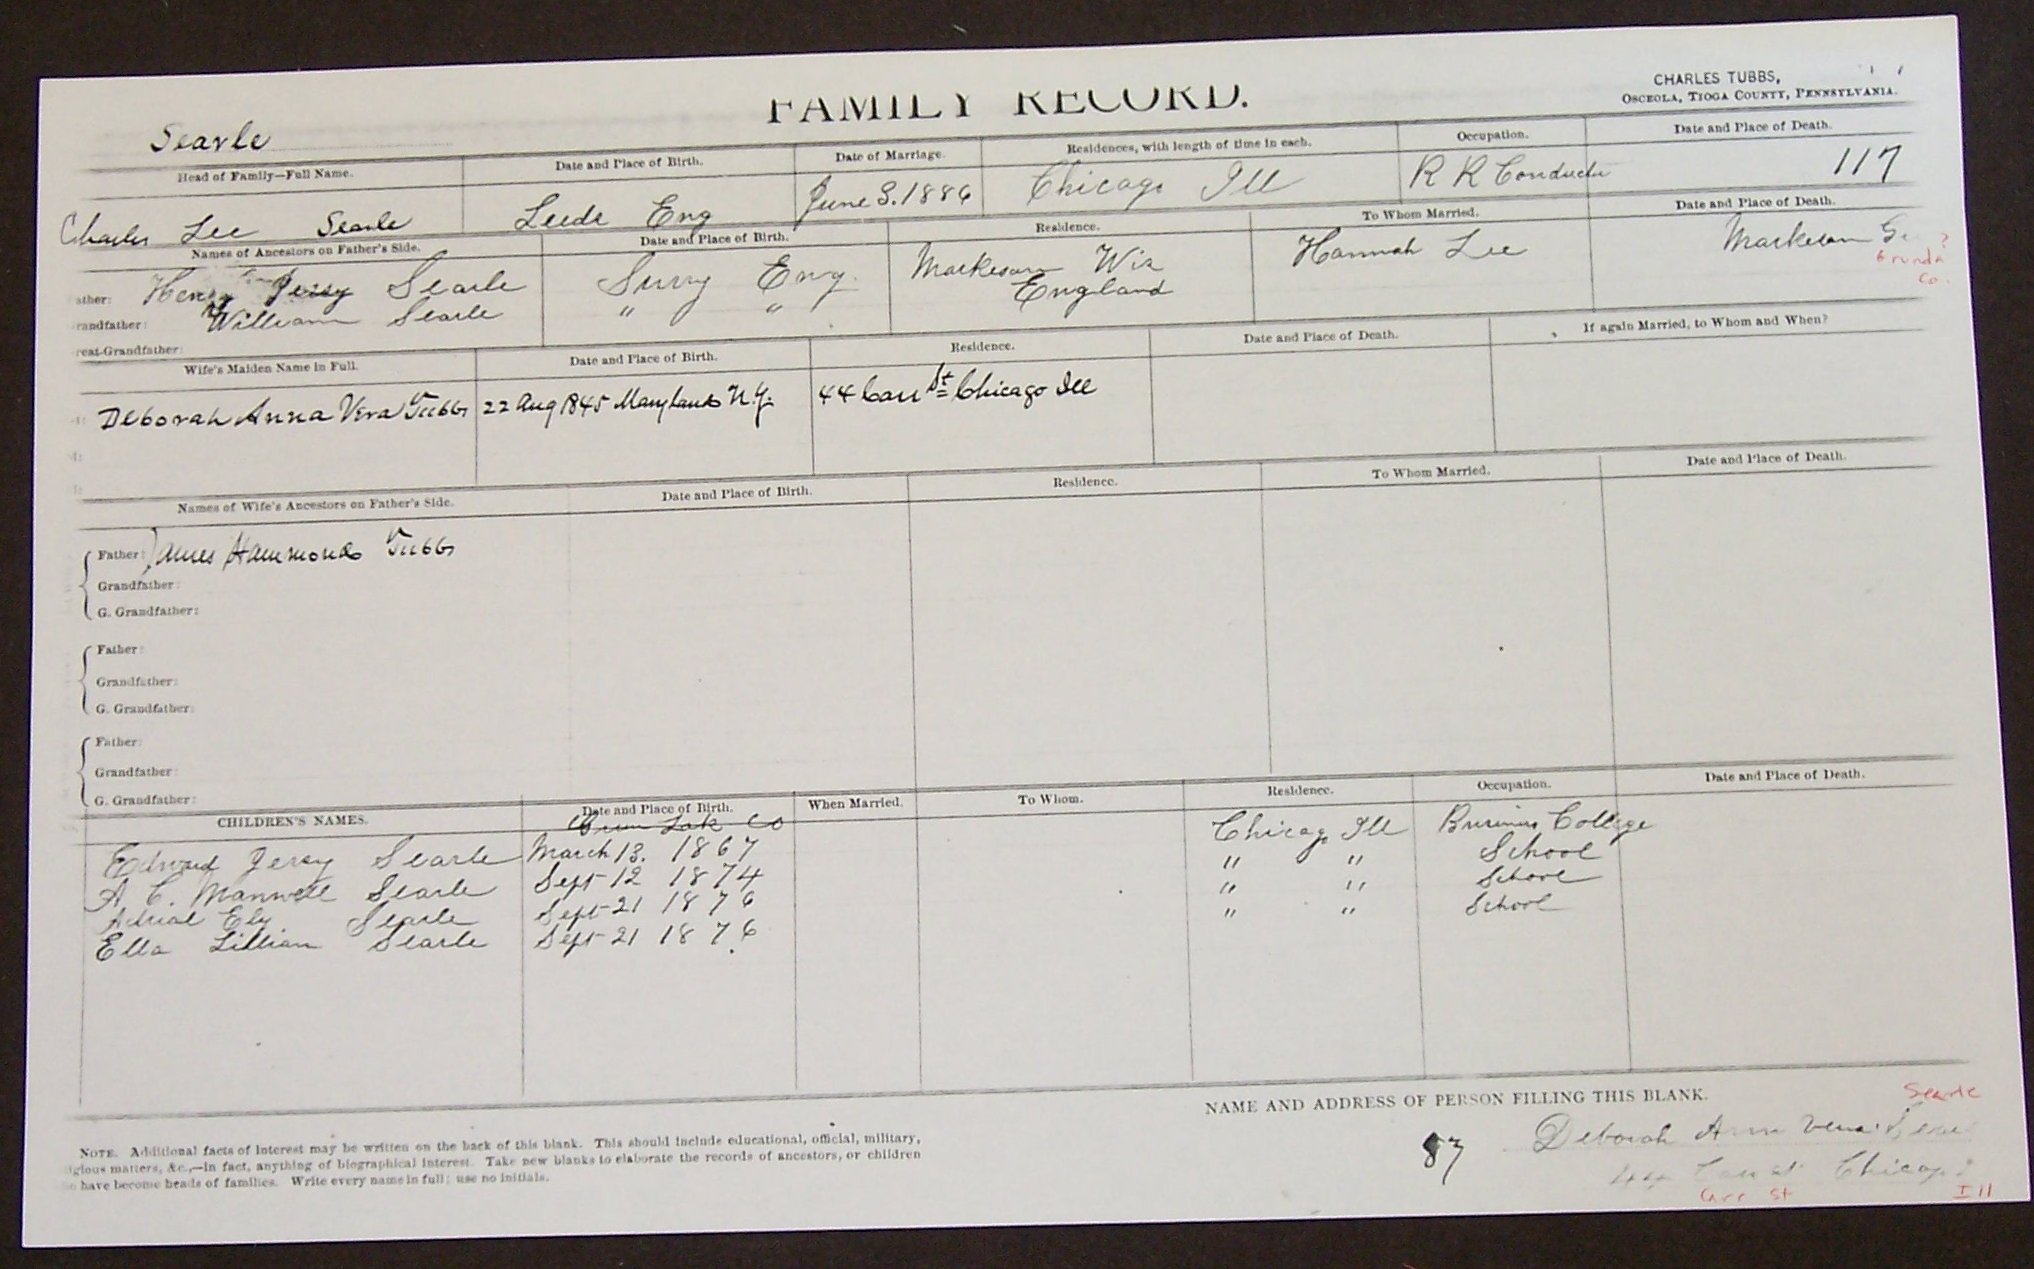 FAMILY RECORD.
CHARLES TUBBS,
OSCEOLA, TIOGA COUNTY, PENNSYLVANIA.
Searle
Head of Family—Full Name. Date and Place of Birth. Date of Marriage. Residences, with length of time in each. Occupation. Date and Place of Death.
Charles Lee Searle Leeds Eng June 3. 1886 Chicago Ill R R Conductor 117
Names of Ancestors on Father's Side. Date and Place of Birth. Residence. To Whom Married. Date and Place of Death.
ather: Henry Jersy Searle Surry Eng. Markesan Wis Hannah Lee Markesan
randfather: William Searle " " England
reat-Grandfather:
Wife's Maiden Name in Full. Date and Place of Birth. Residence. Date and Place of Death. If again Married, to Whom and When?
Deborah Anna Vera Tubbs 22 Aug 1845 Maryland N.Y. 44 Carr St Chicago Ill
Names of Wife's Ancestors on Father's Side. Date and Place of Birth. Residence. To Whom Married. Date and Place of Death.
Father: James Hammond Tubbs
Grandfather:
G. Grandfather:
Father:
Grandfather:
G. Grandfather:
Father:
Grandfather:
G. Grandfather:
CHILDREN'S NAMES. Date and Place of Birth. When Married. To Whom. Residence. Occupation. Date and Place of Death.
Lak Co
Edward Jersy Searle March 13. 1867 Chicago Ill Business College
A C. Manwell Searle Sept 12 1874 " " School
Ely Searle Sept 21 1876 " " School
Ella Lillian Searle Sept 21 1876 " " School
NAME AND ADDRESS OF PERSON FILLING THIS BLANK.
Searle
87 Deborah Ann Vera
44 Carr St Chicago
Carr St Ill
NOTE. Additional facts of interest may be written on the back of this blank. This should include educational, official, military,
igious matters, &c.,—in fact, anything of biographical interest. Take new blanks to elaborate the records of ancestors, or children
have become heads of families. Write every name in full; use no initials.